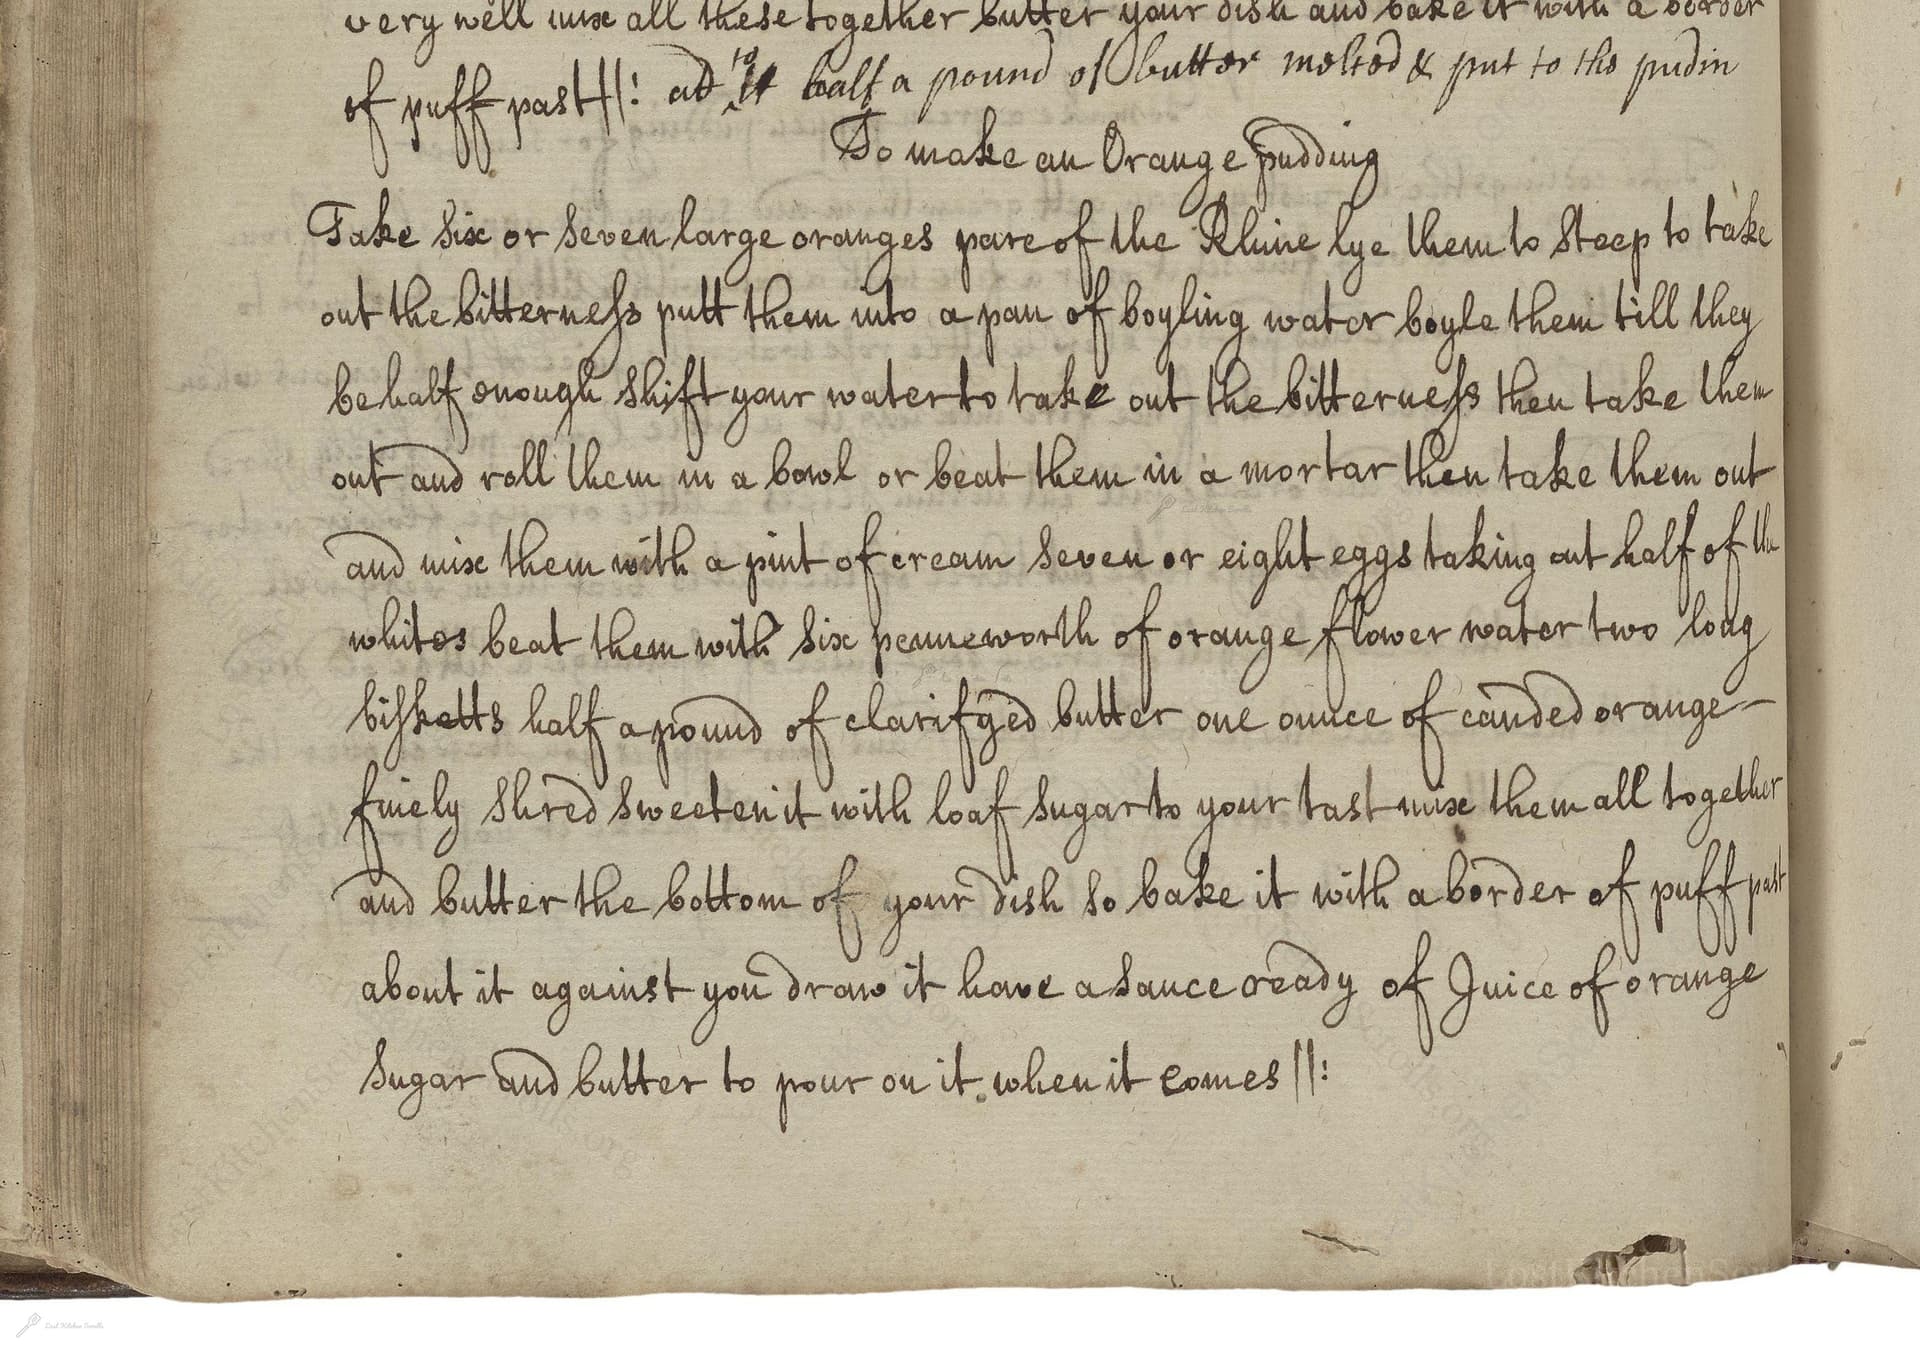 very well mix all these together butter your dish and bake it with a border
of puff past ||: ad to it half a pound of butter melted & put to the pudin
To make an Orange pudding
Take six or seven large oranges pare of the Rhine lye them to steep to take
out the bitterness putt them into a pan of boyling water boyle them till they
be half enough shift your water to take out the bitterness then take them
out and roll them in a bowl or beat them in a mortar then take them out
and mix them with a pint of cream seven or eight eggs taking out half of the
whites beat them with six penneworth of orange flower water two long
bisketts half a pound of clarifyed butter one ounce of canded orange-
finely shred sweeten it with loaf sugar to your tast mix them all together
and butter the bottom of your dish so bake it with a border of puff past
about it against you draw it have a sauce ready of Juice of orange
sugar and butter to pour on it when it comes ||:
Lost Kitchen Scrolls